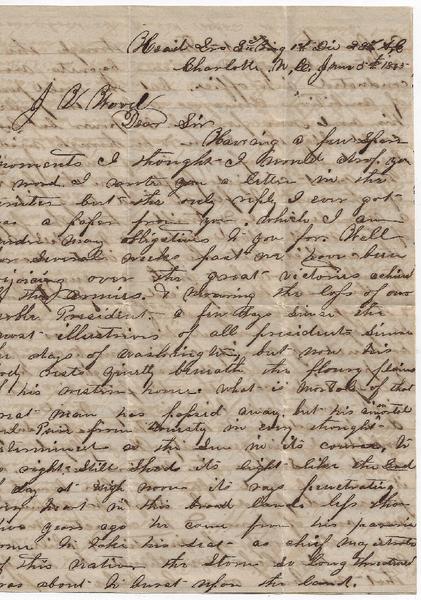 Head Qrs 2nd Brig 1st Div 23d A.C
Charlotte, N, C, June 5th 1865
J B Wood
Dear Sir
Having a few Spair
moments I thought I would drop you
word I wrote you a letter in the
but the only reply I ever got
was a paper from you which I am
under many obligations to you for. Well
for Several weeks past we have been
rejoicing over the great victories achiev
of the armies. & mourning the loss of our
noble President a few days since the
most illustrious of all president Since
the days of Washington, but now his
body rests quietly beneath the flowry plains
of his western home. what is Mortal of that
great man has passed away. but his immortal
from in every thought
as the Sun in its course, to
right still Shed its light like the God
of day at high noon its rays penetrating
every heart in this broad land. less than
five years ago he come from his
home to take his seat as chief magistrate
of this nation the Storm so long threatened
was about to burst upon the land.